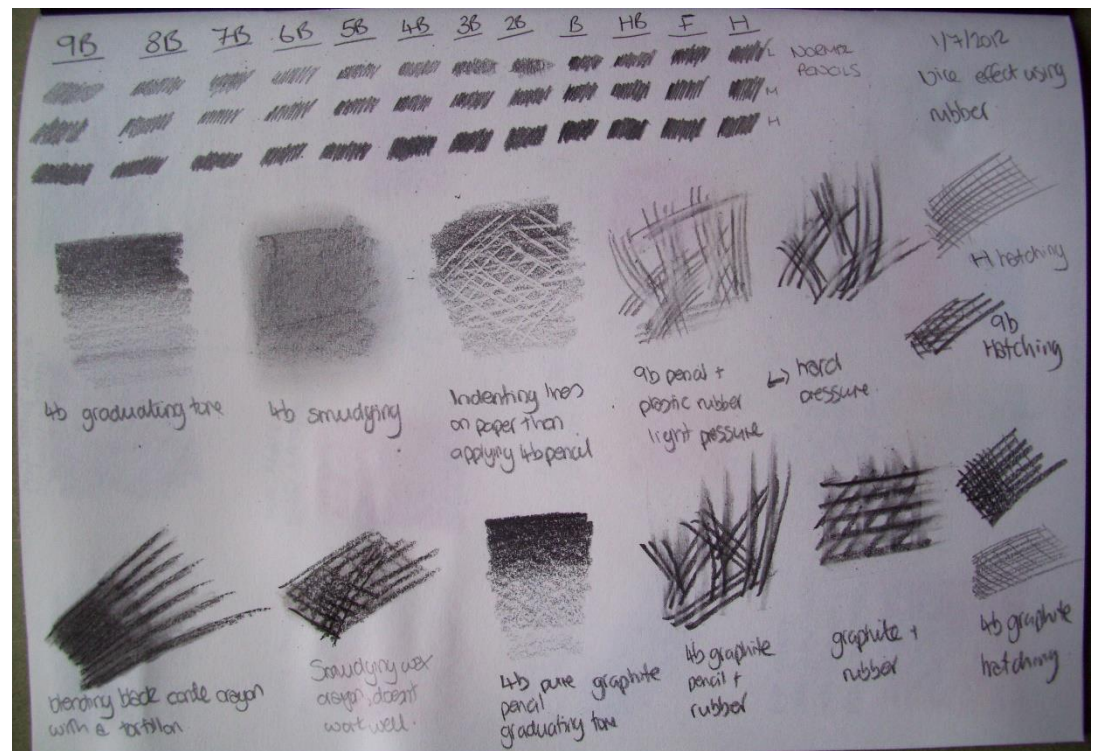 9B 8B 7B 6B 5B 4B 3B 2B B HB F H
L
M
H
NORMAL
PENCILS
1/7/2012
Nice effect using
rubber
H hatching
9b
Hatching
4b graduating tone
4b smudging
Indenting lines
on paper then
applying 4b pencil
9b pencil +
plastic rubber
light pressure
↳ hard
pressure.
blending black conte crayon
with a tortillon
Smudging wax
crayon, doesn't
work well.
4b pure graphite
pencil
graduating tone
4b graphite
pencil +
rubber
graphite +
rubber
4b graphite
hatching